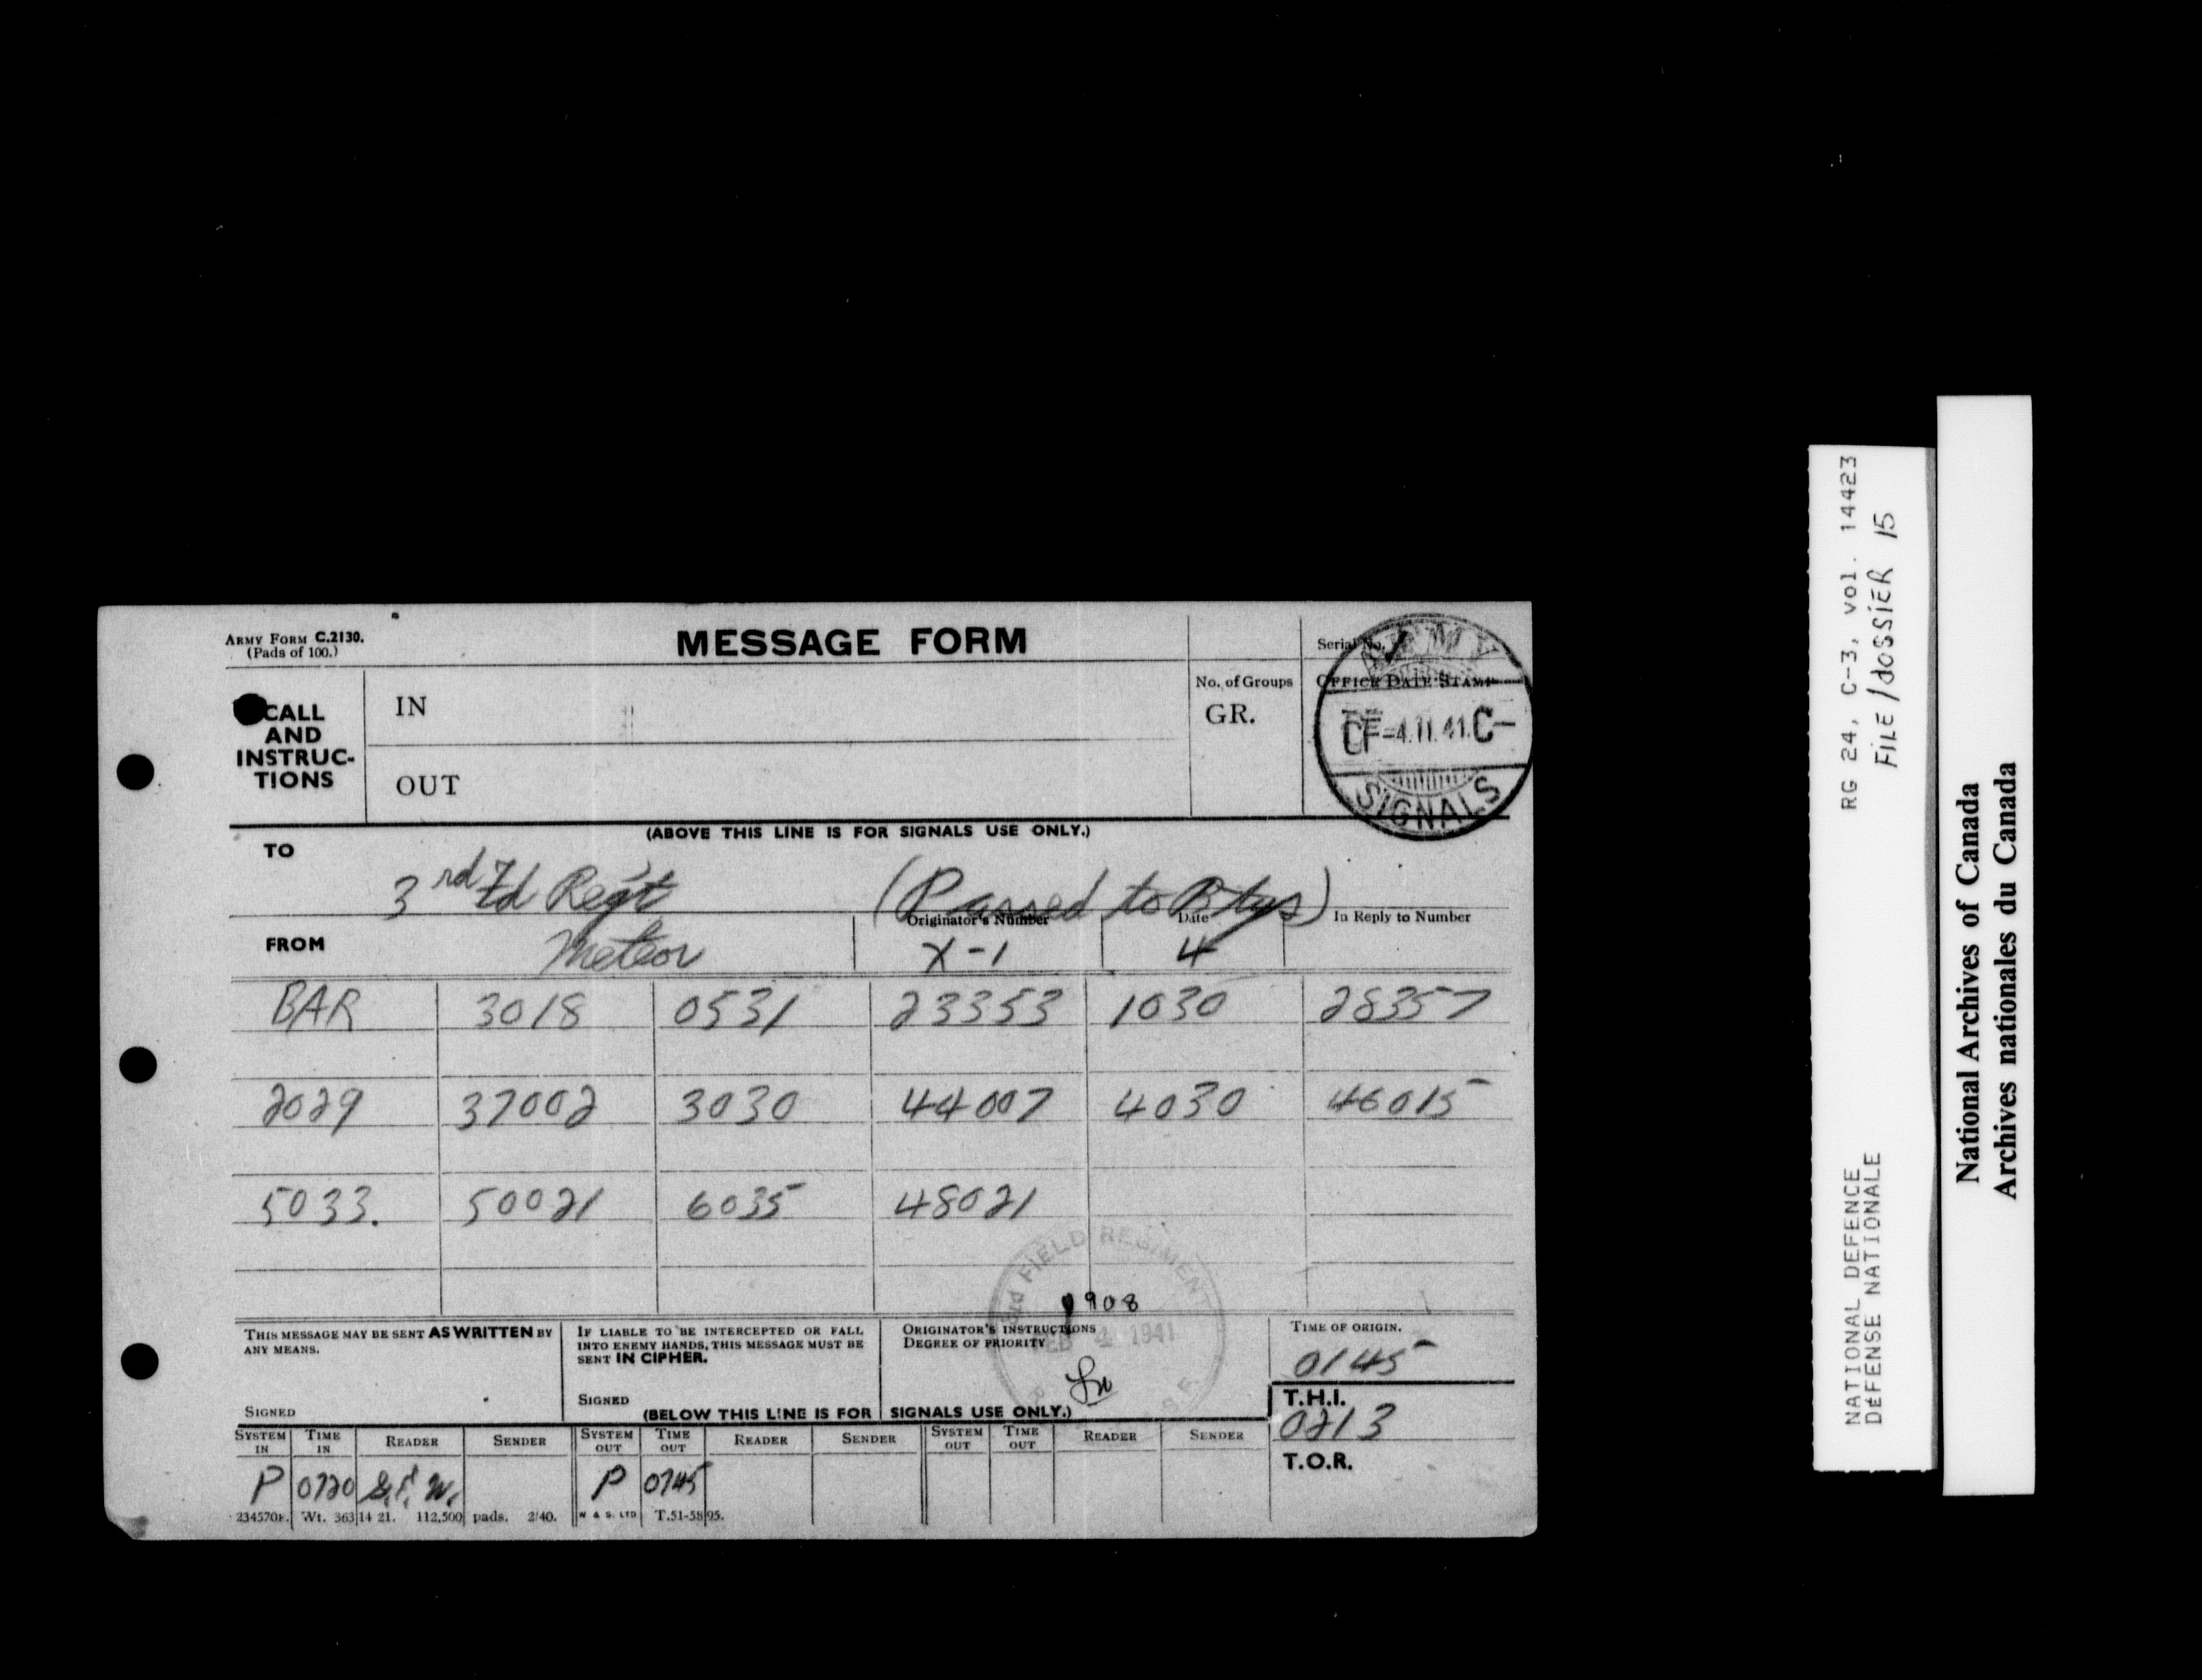 ARMY FORM C.2130.
(Pads of 100.)
MESSAGE FORM
Serial No.
CALL AND INSTRUC-TIONS
IN
OUT
No. of Groups
GR.
OFFICE DATE STAMP
ARMY
CF -4.II.41.C-
SIGNALS
(ABOVE THIS LINE IS FOR SIGNALS USE ONLY.)
TO
3rd Fd Reg't (Passed to Btys)
FROM Meteor
Originator's Number X-1
Date 4
In Reply to Number
BAR 3018 0531 23353 1030 28357
2029 37002 3030 44007 4030 46015
5033. 50021 6035 48021
3rd FIELD REGIMENT
0908
FEB 4 1941
THIS MESSAGE MAY BE SENT AS WRITTEN BY
ANY MEANS.
SIGNED
IF LIABLE TO BE INTERCEPTED OR FALL
INTO ENEMY HANDS, THIS MESSAGE MUST BE
SENT IN CIPHER.
SIGNED
ORIGINATOR'S INSTRUCTIONS
DEGREE OF PRIORITY
TIME OF ORIGIN.
0145
T.H.I.
0213
T.O.R.
(BELOW THIS LINE IS FOR SIGNALS USE ONLY.)
SYSTEM IN TIME IN READER SENDER SYSTEM OUT TIME OUT READER SENDER SYSTEM OUT TIME OUT READER SENDER
P 0720 P 0745
234570F. Wt. 36314 21. 112,500 pads. 2/40. W & S. LTD T.51-5895.
RG 24, C-3, vol. 14423
FILE/dOSSIER 15
NATIONAL DEFENCE
DéFENSE NATIONALE
National Archives of Canada
Archives nationales du Canada